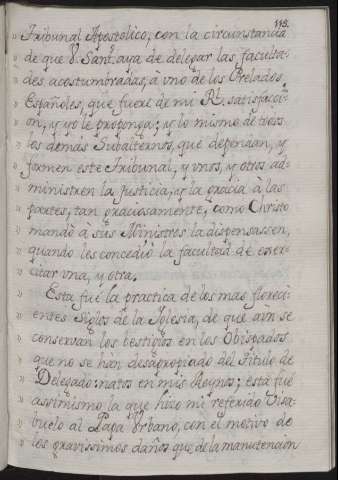 115.
" Tribunal Apostolico, con la circunstancia
" de que V. Sant. aya de delegar las faculta-
" des acostumbradas, à vno de los Prelados
" Españoles, que fuere de mi Rl. satisfacci-
" on, y yo le proponga; y lo mismo de todos
" los demas Subalternos, que dependan, y
" formen este Tribunal, y vnos, y otros ad-
" ministren la Justicia, y la gracia à las
" partes, tan graciosamente, como Christo
" mandò à sus Ministros la dispensassen,
" quando les concediò la facultad de exer-
" citar vna, y otra.
" Esta fuè la practica de los mas floreci-
" entes Siglos de la Iglesia, de que aùn se
" conservan los bestigios en los Obispados
" que no se hàn desapropiado del Titulo de
" Delegados natos en mis Reynos; esta fuè
" assimismo la que hizo mi referido Visa-
" buelo al Papa Vrbano, con el motivo de
" los gravissimos daños que de la manutencion